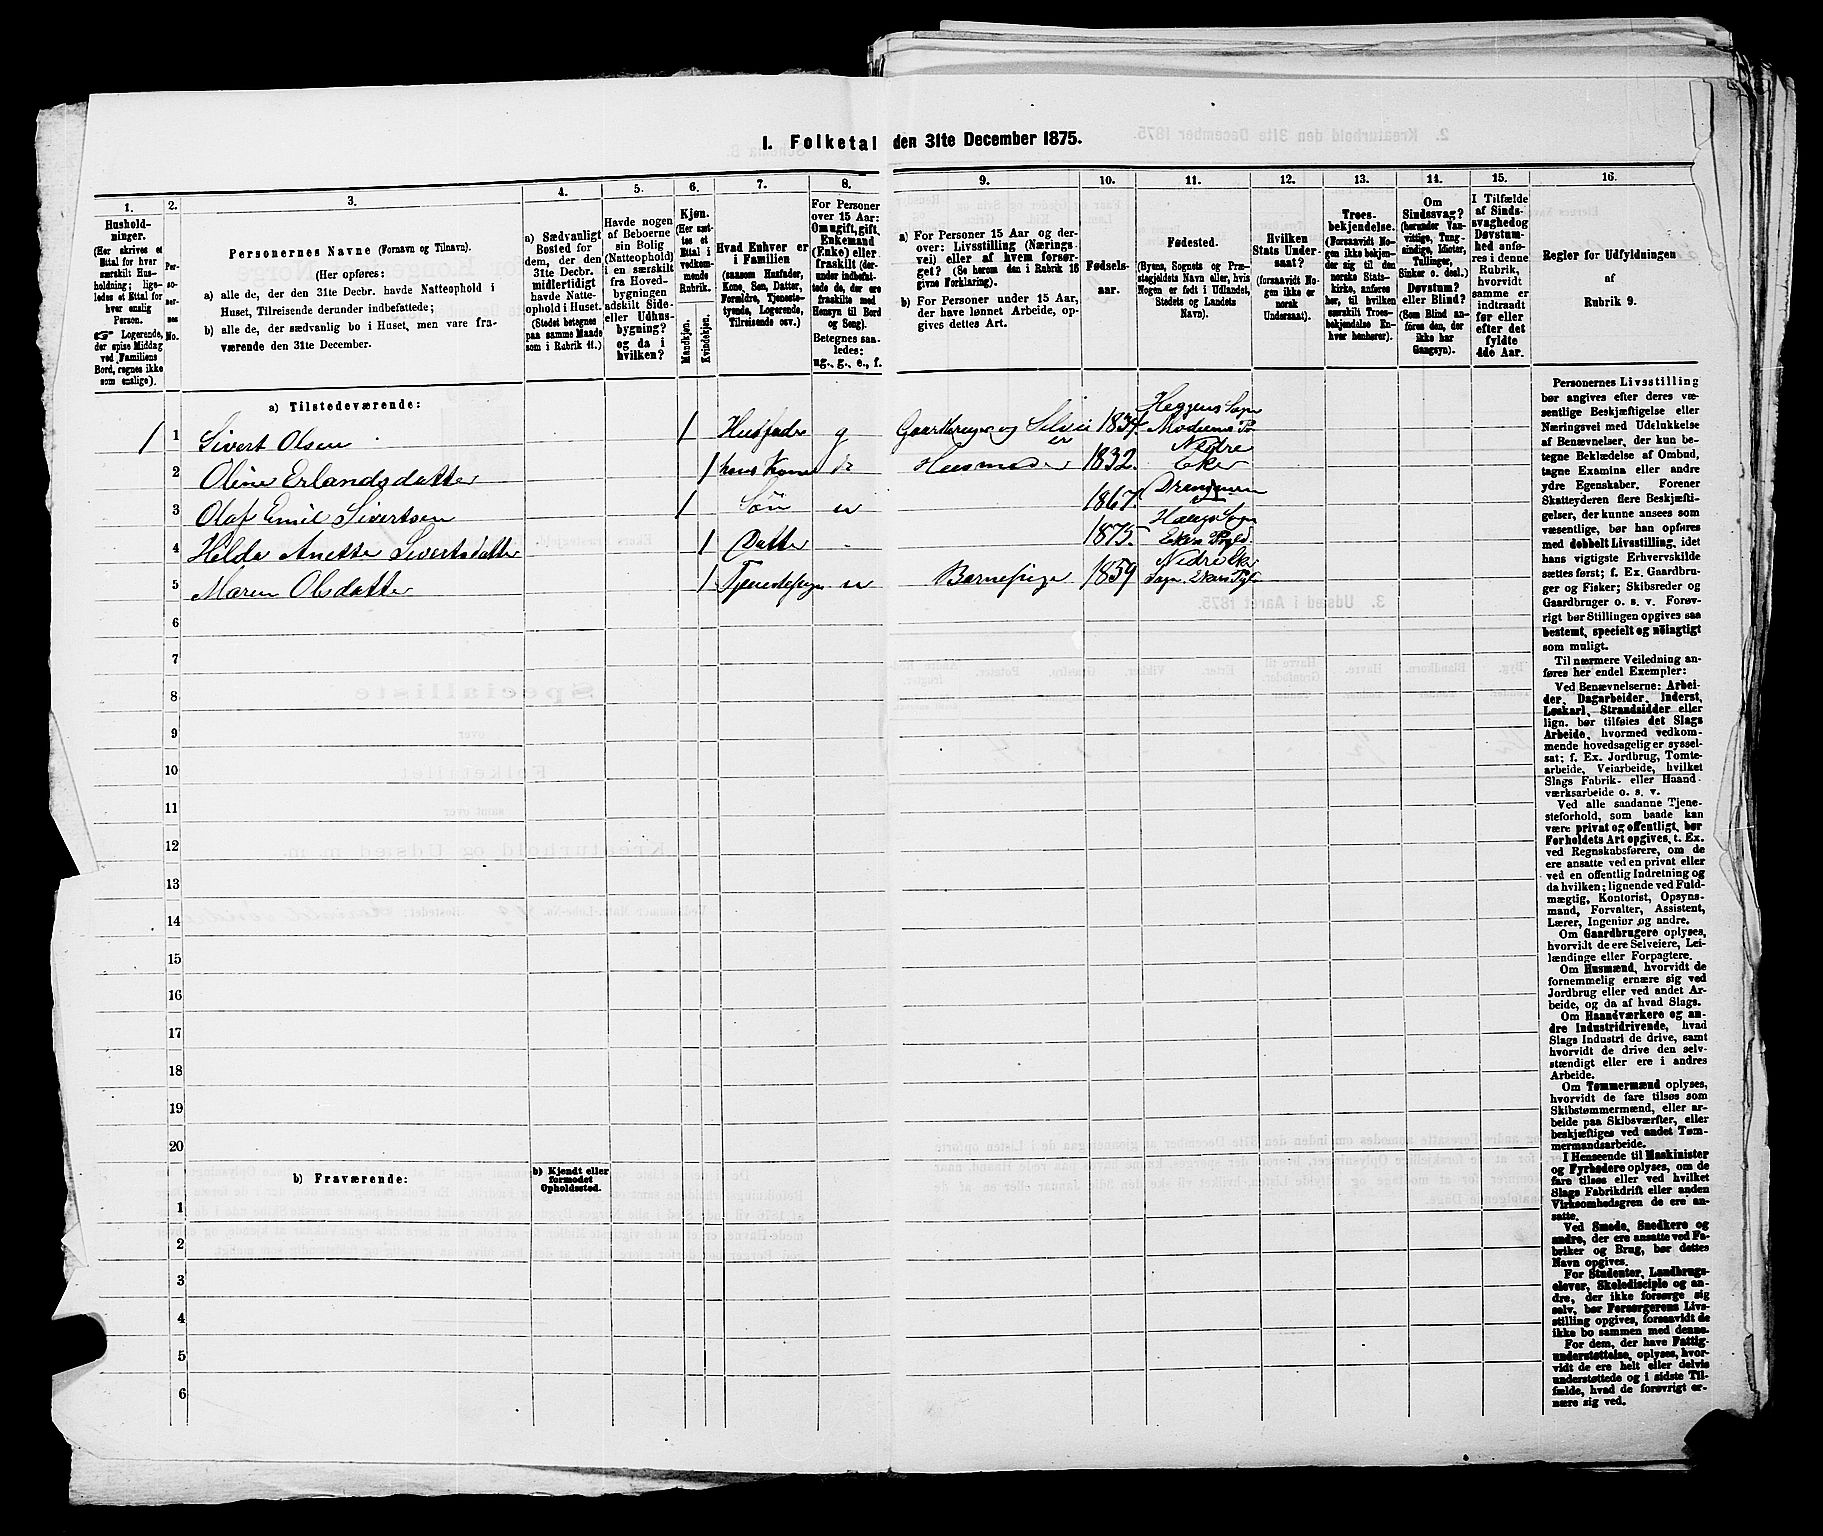 I. Folketal den 31te December 1875.
1.
Hushold-
ninger.
(Her skrives et
Ettal for hver
særskilt Hus-
holdning; lige-
ledes et Ettal for
hver enslig
Person.
Logerende,
der spise Middag
ved Familiens
Bord, regnes ikke
som enslige).
2.
Per-
so-
ner-
nes
No.
3.
Personernes Navne (Fornavn og Tilnavn).
(Her opføres:
a) alle de, der den 31te Decbr. havde Natteophold i
Huset, Tilreisende derunder indbefattede;
b) alle de, der sædvanlig bo i Huset, men vare fra-
værende den 31te December.
4.
a) Sædvanligt
Bosted for
dem, der den
31te Decbr.
midlertidigt
havde Natte-
ophold i Huset.
(Stedet betegnes
paa samme Maade
som i Rubrik 11.)
5.
Havde nogen
af Beboerne
sin Bolig
(Natteophold)
i en særskilt
fra Hoved-
bygningen
adskilt Side-
eller Udhus-
bygning?
og da i
hvilken?
6.
Kjøn.
(Her sæt-
tes et
Ettal i
vedkom-
mende
Rubrik.
Mandkjøn.
Kvindekjøn.
7.
Hvad Enhver er
i Familien
(saasom Husfader,
Kone, Søn, Datter,
Forældre, Tjeneste-
tyende, Logerende,
Tilreisende osv.)
8.
For Personer
over 15 Aar:
Om ugift, gift,
Enkemand
(Enke) eller
fraskilt (der-
under indbefat-
tede de, der ere
fraskilte med
Hensyn til Bord
og Seng).
Betegnes saa-
ledes:
ug., g., e., f.
9.
a) For Personer 15 Aar og der-
over: Livsstilling (Nærings-
vei) eller af hvem forsør-
get? (Se herom den i Rubrik 16
givne Forklaring).
b) For Personer under 15 Aar,
der have lønnet Arbeide, op-
gives dettes Art.
10.
Fødsels-
aar.
11.
Fødested.
(Byens, Sognets og Præ-
stegjeldets Navn eller, hvis
Nogen er født i Udlandet,
Stedets og Landets
Navn).
12.
Hvilken
Stats Under-
saat?
(forsaavidt No-
gen ikke er
norsk
Undersaat).
13.
Troes-
bekjendelse.
(Forsaavidt No-
gen ikke bekjen-
der sig til
den norske Stats-
kirke, anføres
her, til hvilken
særskilt Troes-
bekjendelse En-
hver henhører).
14.
Om
Sindssvag?
(herunder Van-
vittige, Tung-
sindige, Idioter,
Tullinger,
Sinker o. desl.)
Døvstum?
eller Blind?
(Som Blind an-
føres den, der
ikke har
Gangsyn).
15.
I Tilfælde
af Sinds-
svaghed og
Døvstum-
hed anfø-
res i denne
Rubrik,
hvorvidt
samme er
indtraadt
før eller
efter det
fyldte
4de Aar.
16.
Regler for Udfyldningen
af
Rubrik 9.
a) Tilstedeværende:
1 1 Sivert Olsen 1 Husfader g Gaardbruger og Selveier 1834. Heggens Sogn Modums P
2 Oline Erlandsdatter 1 hans Kone do Husmoder 1832. Nedre Eker
3 Olaf Emil Sivertsen 1 Søn u 1867. Drammen
4 Hilda Anette Sivertsdatter 1 Datter - 1875 Haugs Sogn Ekers Pgld
5 Maren Olsdatter 1 Tjenestepige u Barnepige 1859 Nedre Eker Sogn. Ekers Pgld
6
7
8
9
10
11
12
13
14
15
16
17
18
19
20
b) Fraværende:
b) Kjendt eller
formodet
Opholdssted.
1
2
3
4
5
6
Personernes Livsstilling
bør angives efter deres væ-
sentlige Beskjæftigelse eller
Næringsvei med Udelukkelse
af Benævnelser, der kun be-
tegne Beklædelse af Ombud,
tagne Examina eller andre
ydre Egenskaber. Forener
Skatteyderen flere Beskjæfti-
gelser, der kunne ansees som
væsentlige, bør han opføres
med dobbelt Livsstilling, idet
hans vigtigste Erhvervskilde
sættes først; f. Ex. Gaardbru-
ger og Fisker; Skibsreder og
Gaardbruger o. s. v. Forøv-
rigt bør Stillingen opgives saa
bestemt, specielt og nøiagtigt
som muligt.
Til nærmere Veiledning an-
føres her endel Exempler:
Ved Benævnelserne: Arbei-
der, Dagarbeider, Inderst,
Løskarl, Strandsidder eller
lign. bør tilføies det Slags
Arbeide, hvormed vedkom-
mende hovedsagelig er syssel-
sat; f. Ex. Jordbrug, Tomte-
arbeide, Veiarbeide, hvilket
Slags Fabrik- eller Haand-
værksarbeide o. s. v.
Ved alle saadanne Tjene-
steforhold, som baade kan
være privat og offentligt, bør
Forholdets Art opgives, t. Ex.
ved Regnskabsførere, om de
ere ansatte ved en privat eller
ved en offentlig Indretning og
da hvilken; lignende ved Fuld-
mægtig, Kontorist, Opsyns-
mand, Forvalter, Assistent,
Lærer, Ingeniør og andre.
Om Gaardbrugere oplyses,
hvorvidt de ere Selveiere, Lei-
lændinge eller Forpagtere.
Om Husmænd, hvorvidt de
fornemmelig ernære sig ved
Jordbrug eller ved andet Ar-
beide, og da af hvad Slags.
Om Haandværkere og an-
dre Industridrivende, hvad
Slags Industri de drive, samt
hvorvidt de drive den selv-
stændigt eller ere i andres
Arbeide.
Om Tømmermænd oplyses,
hvorvidt de fare tilsøs som
Skibstømmermænd, eller ar-
beide paa Skibsværfter, eller
beskjæftiges ved andet Tøm-
mermandsarbeide.
I Henseende til Maskinister
og Fyrbødere oplyses, om de
fare tilsøs eller ved hvilket
Slags Fabrikdrift eller anden
Virksomhedsgren de ere an-
satte.
Ved Smede, Snedkere og
andre, der ere ansatte ved Fa-
briker og Brug, bør dettes
Navn opgives.
For Studenter, Landbrugs-
elever, Skoledisciple og an-
dre, der ikke forsørge sig
selv, bør Forsørgerens Livs-
stilling opgives, forsaavidt de
ikke bo sammen med denne.
For dem, der have Fattig-
understøttelse, oplyses, hvor-
vidt de ere helt eller delvis
understøttede og i sidste Til-
fælde, hvad de forøvrigt er-
nære sig ved.